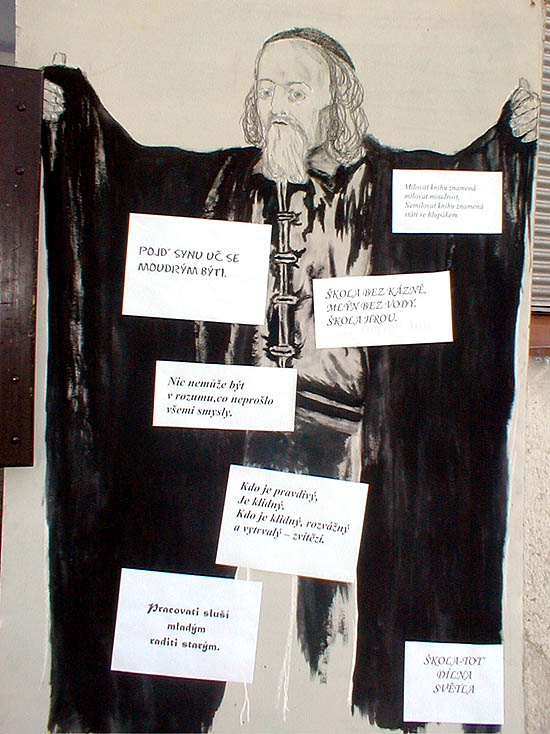 Milovat knihu znamená
milovat moudrost,
Nemilovat knihu znamená
státi se hlupákem.
POJĎ SYNU UČ SE
MOUDRÝM BÝTI.
ŠKOLA BEZ KÁZNĚ,
MLÝN BEZ VODY.
ŠKOLA HROU.
Nic nemůže být
v rozumu,co neprošlo
všemi smysly.
Kdo je pravdivý,
Je klidný,
Kdo je klidný, rozvážný
a vytrvalý – zvítězí.
Pracovati sluší
mladým
raditi starým.
ŠKOLA-TOŤ
DÍLNA
SVĚTLA